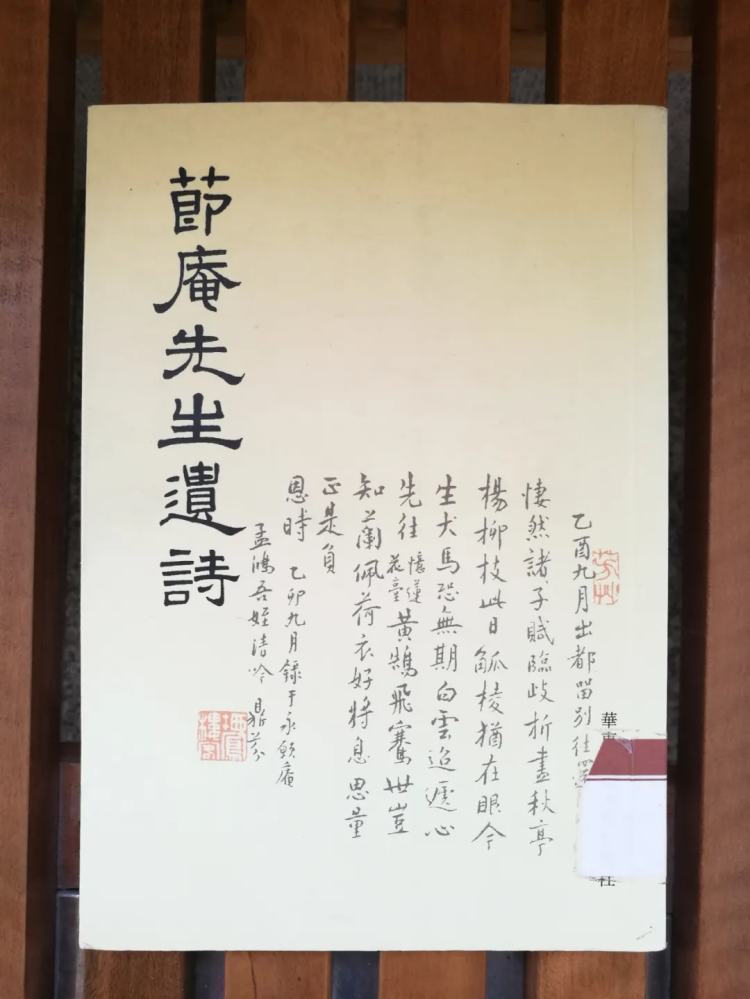 莭庵先生遺詩
乙酉九月出都畱別往
悽然諸子賦臨歧折盡秋亭
楊柳枝此日觚棱猶在眼今
生犬馬恐無期白雲迢遞心
先往憶蓮花臺黃鵠飛騫世豈
知蘭佩荷衣好將息思量
正是負
恩時 乙卯九月錄于永願庵
孟鴻吾姪清吟 鼎芬
華東
社